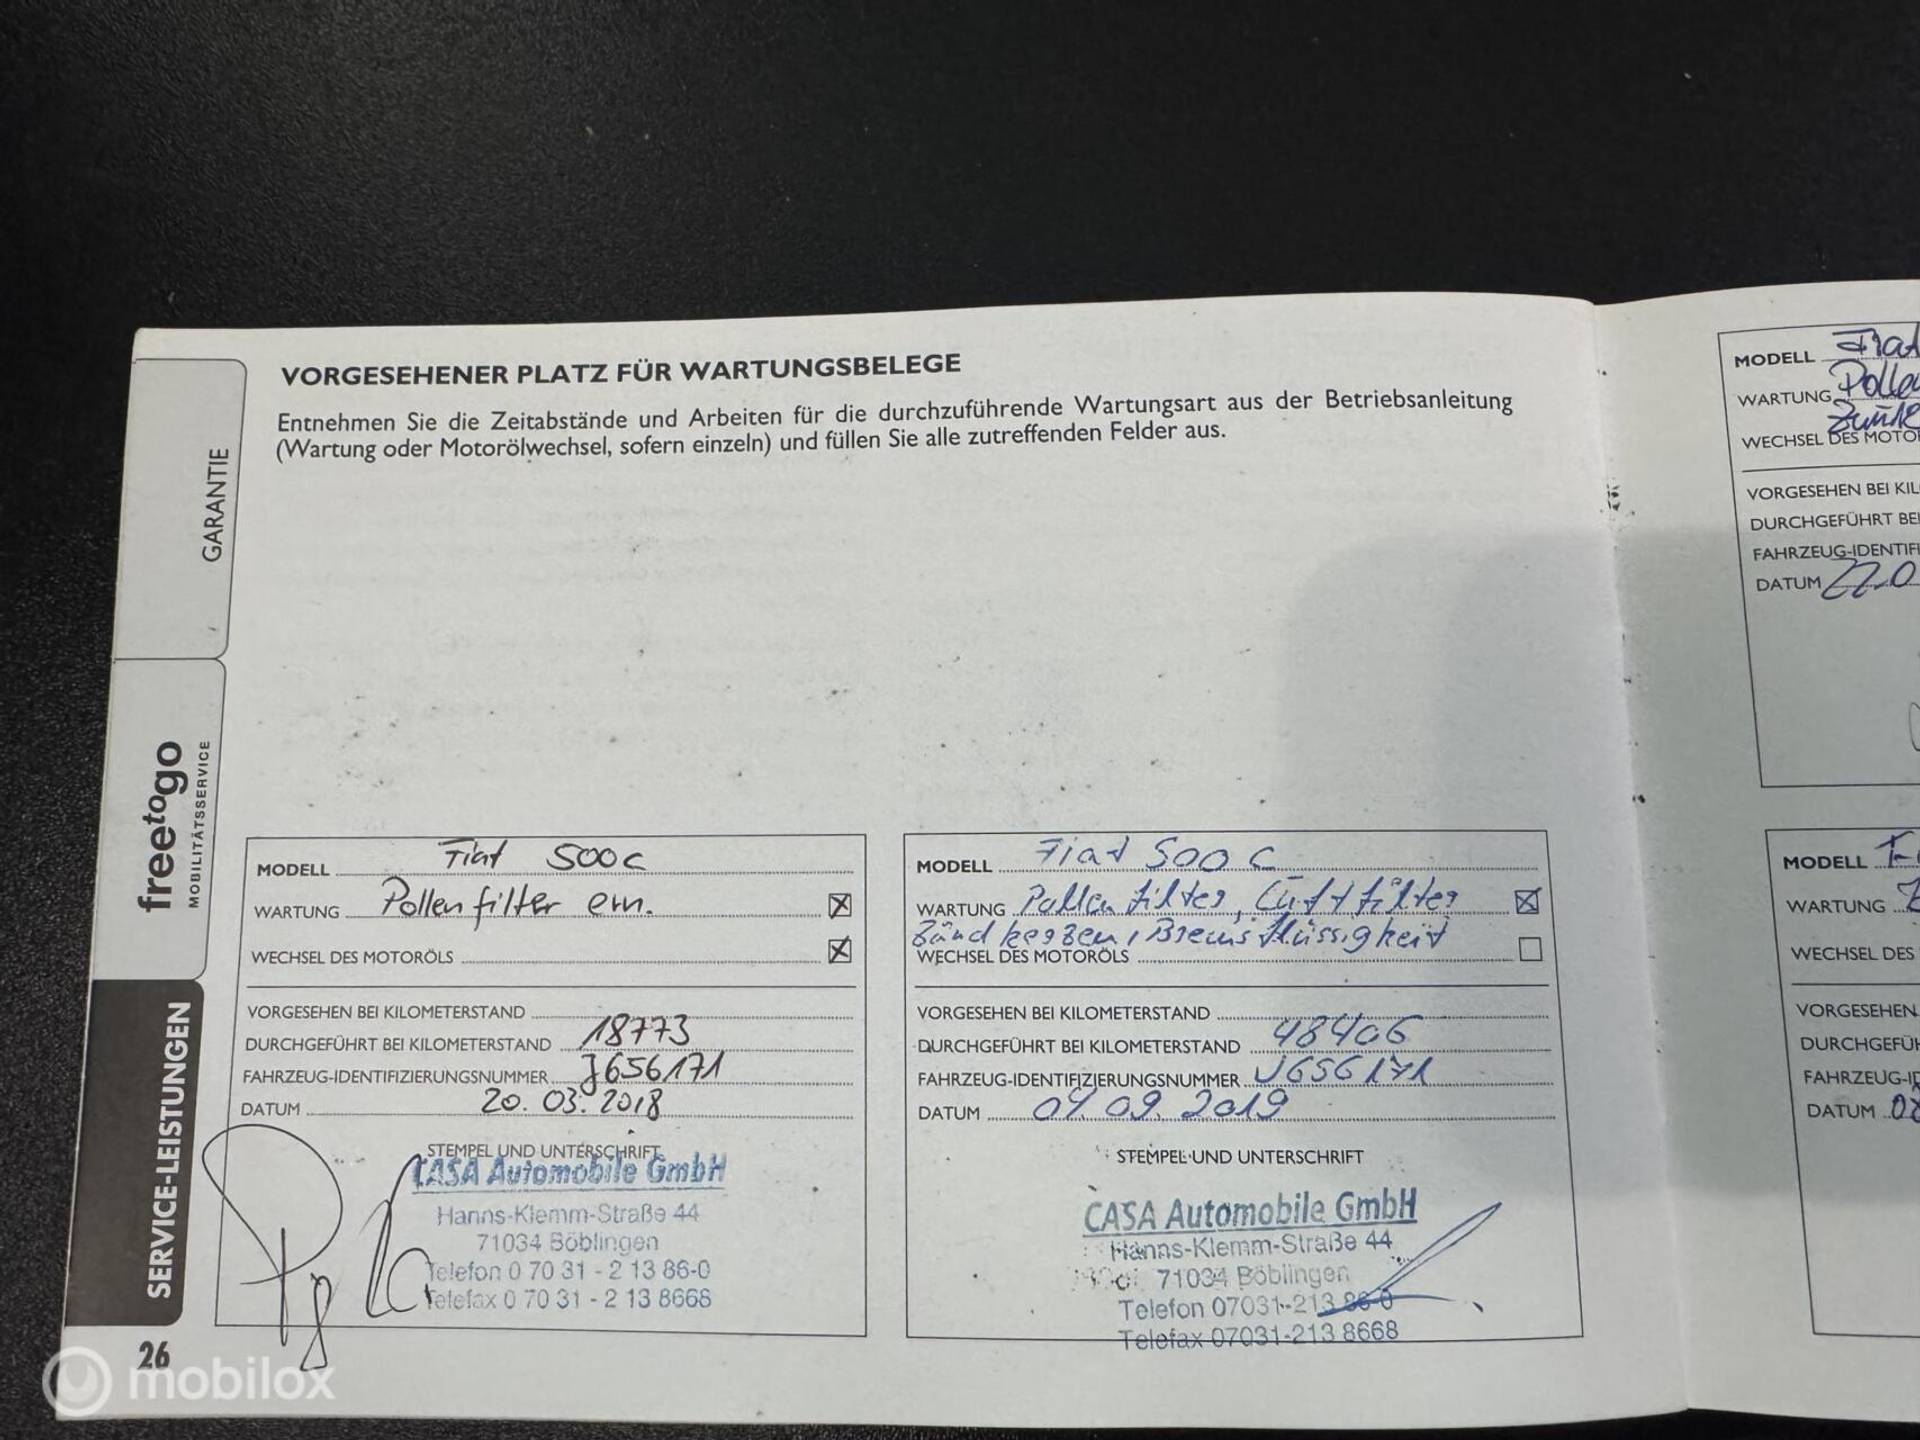 VORGESEHENER PLATZ FÜR WARTUNGSBELEGE
Entnehmen Sie die Zeitabstände und Arbeiten für die durchzuführende Wartungsart aus der Betriebsanleitung
(Wartung oder Motorölwechsel, sofern einzeln) und füllen Sie alle zutreffenden Felder aus.
GARANTIE
freetogo
MOBILITÄTSSERVICE
SERVICE-LEISTUNGEN
26
MODELL Fiat 500c
WARTUNG Pollenfilter ern.
WECHSEL DES MOTORÖLS
VORGESEHEN BEI KILOMETERSTAND
DURCHGEFÜHRT BEI KILOMETERSTAND 18773
FAHRZEUG-IDENTIFIZIERUNGSNUMMER J656171
DATUM 20.03.2018
STEMPEL UND UNTERSCHRIFT
CASA Automobile GmbH
Hanns-Klemm-Straße 44
71034 Böblingen
Telefon 0 70 31 - 2 13 86-0
Telefax 0 70 31 - 2 13 8668
MODELL Fiat 500 C
WARTUNG Pollenfilter, Luftfilter
Zündkerzen, Bremsflüssigkeit
WECHSEL DES MOTORÖLS
VORGESEHEN BEI KILOMETERSTAND
DURCHGEFÜHRT BEI KILOMETERSTAND 48406
FAHRZEUG-IDENTIFIZIERUNGSNUMMER J656171
DATUM 04.09.2019
STEMPEL UND UNTERSCHRIFT
CASA Automobile GmbH
Hanns-Klemm-Straße 44
71034 Böblingen
Telefon 07031-213 86-0
Telefax 07031-213 8668
MODELL Fiat
WARTUNG Pollen
WECHSEL DES MOTOR
VORGESEHEN BEI KIL
DURCHGEFÜHRT BEI
FAHRZEUG-IDENTIFI
DATUM 22.0
MODELL
WARTUNG
WECHSEL DES
VORGESEHEN
DURCHGEFÜH
FAHRZEUG-ID
DATUM 08
mobilox